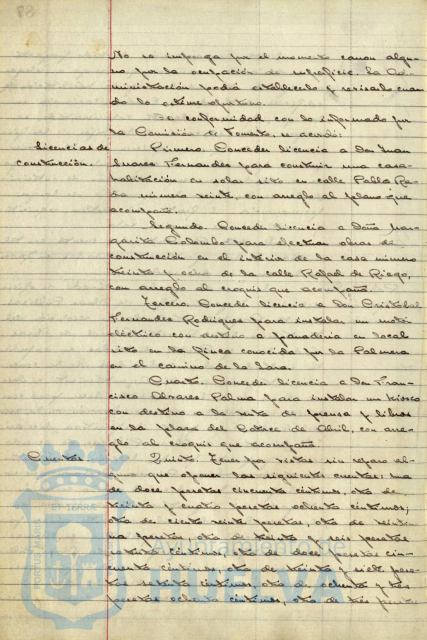 No se imponga por el momento canon algu-
no por la ocupación de superficie. La Ad-
ministración podrá establecerlo y revisarlo cuan-
do lo estime oportuno.
De conformidad con lo informado por
la Comisión de Fomento, se acordó:
Licencias de
construcción.
Primero. Conceder licencia a Don Juan
Suares Fernandes para construir una casa-
habitación en solar sito en calle Pablo Ra-
da número veinte, con arreglo al plano que
acompaña.
Segundo. Conceder licencia a Doña Mar-
garita Colombo para efectuar obras de
construcción en el interior de la casa número
treinta y ocho de la calle Rafael de Riego,
con arreglo al croquis que acompaña.
Tercero. Conceder licencia a Don Cristobal
Fernandes Rodrigues para instalar un motor
eléctrico con destino a panaderia en local
sito en la finca conocida por la Palmera
en el camino de la
Cuarto. Conceder licencia a Don Fran-
cisco Alvares Palma para instalar un kiosco
con destino a la venta de prensa y libros
en la plaza del Catorce de Abril, con arre-
glo al croquis que acompaña.
Cuentas.
Quinto. Tener por vistas sin reparo al-
guno que oponer las siguientes cuentas: una
de doce pesetas cincuenta céntimos, otra de
treinta y cuatro pesetas ochenta céntimos;
otra de ciento veinte pesetas, otra de
pesetas, otra de treinta y seis pesetas
céntimos, otra de doce pesetas cin-
cuenta céntimos, otra de treinta y siete pese-
tas setenta céntimos, otra de ochenta y tres
pesetas ochenta céntimos, otra de tres pesetas
Ayuntamiento de
HUELVA